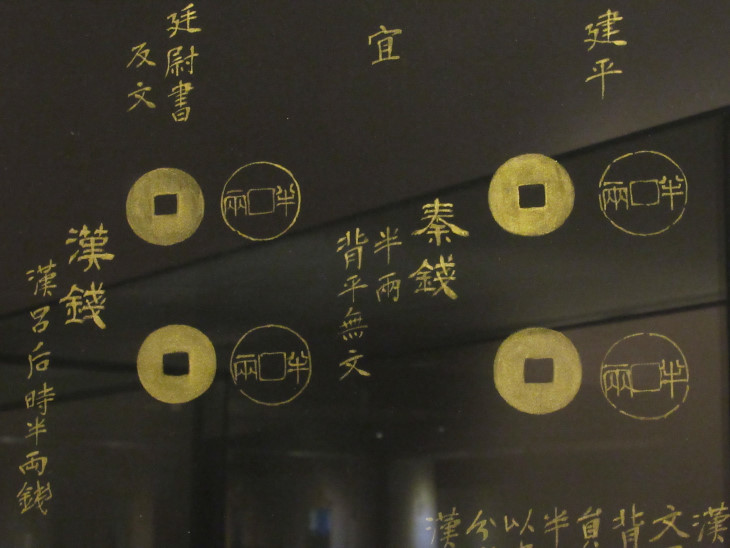 建平
半兩
半兩
宜
秦錢
半兩
背平無文
廷尉書
反文
半兩
半兩
漢錢
漢呂后時半兩錢
漢
文
背
半
以
分
漢